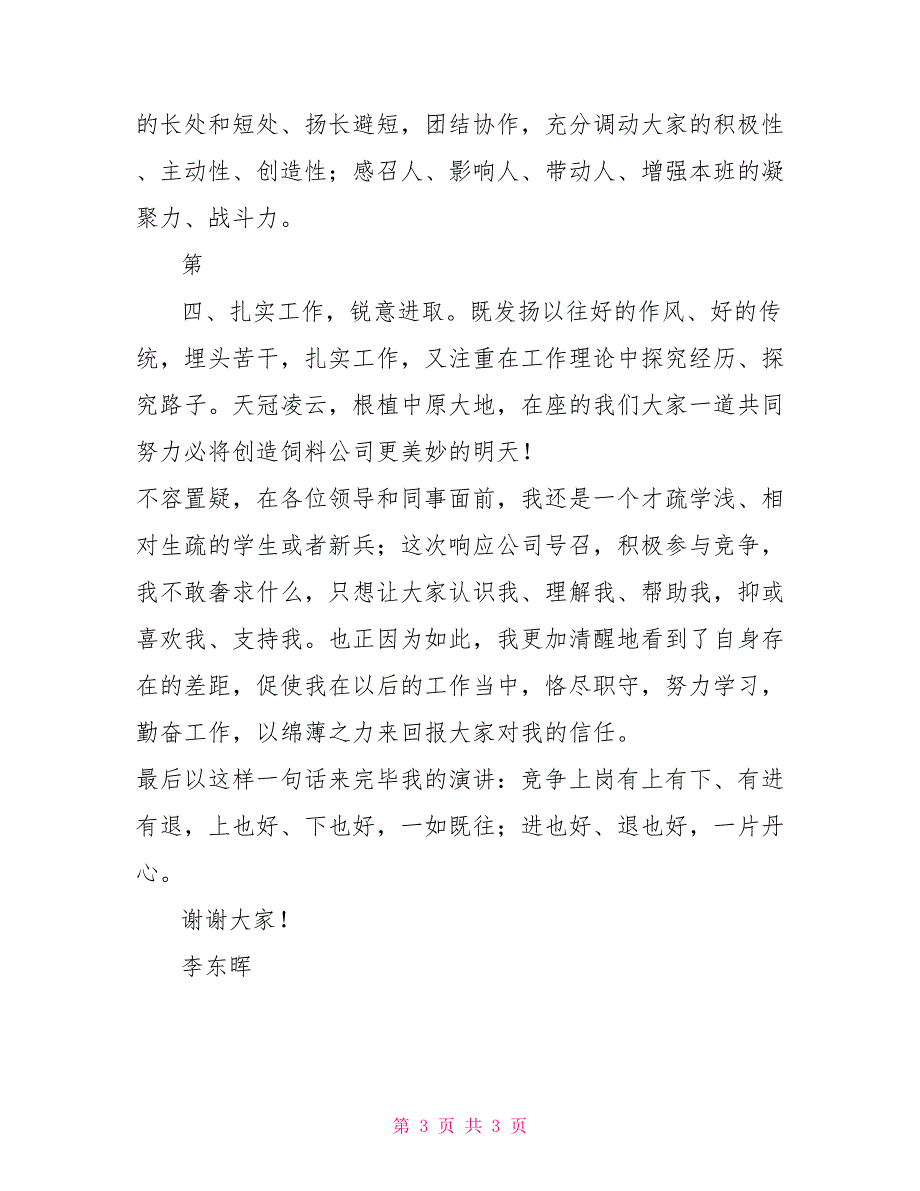 的长处和短处、扬长避短，团结协作，充分调动大家的积极性
、主动性、创造性；感召人、影响人、带动人、增强本班的凝
聚力、战斗力。
第
四、扎实工作，锐意进取。既发扬以往好的作风、好的传
统，埋头苦干，扎实工作，又注重在工作理论中探究经历、探
究路子。天冠凌云，根植中原大地，在座的我们大家一道共同
努力必将创造饲料公司更美妙的明天！
不容置疑，在各位领导和同事面前，我还是一个才疏学浅、相
对生疏的学生或者新兵；这次响应公司号召，积极参与竞争，
我不敢奢求什么，只想让大家认识我、理解我、帮助我，抑或
喜欢我、支持我。也正因为如此，我更加清醒地看到了自身存
在的差距，促使我在以后的工作当中，恪尽职守，努力学习，
勤奋工作，以绵薄之力来回报大家对我的信任。
最后以这样一句话来完毕我的演讲：竞争上岗有上有下、有进
有退，上也好、下也好，一如既往；进也好、退也好，一片丹
心。
谢谢大家！
李东晖
第 3 页 共 3 页